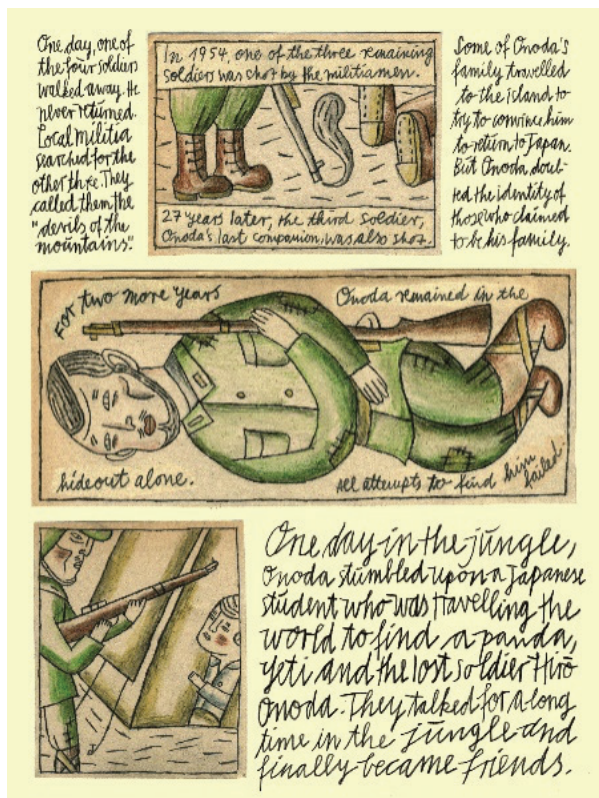 One day, one of
the four soldiers
walked away. He
never returned.
Local militia
searched for the
other three. They
called them the
"devils of the
mountains."
In 1954, one of the three remaining
soldiers was shot by the militiamen.
27 years later, the third soldier,
Onoda's last companion, was also shot.
Some of Onoda's
family travelled
to the island to
try to convince him
to return to Japan.
But Onoda doub-
ted the identity of
those who claimed
to be his family.
For two more years
Onoda remained in the
hideout alone.
All attempts to find him
failed.
One day in the jungle,
Onoda stumbled upon a Japanese
student who was travelling the
world to find a panda,
yeti and the lost soldier Hiro
Onoda. They talked for a long
time in the jungle and
finally became friends.